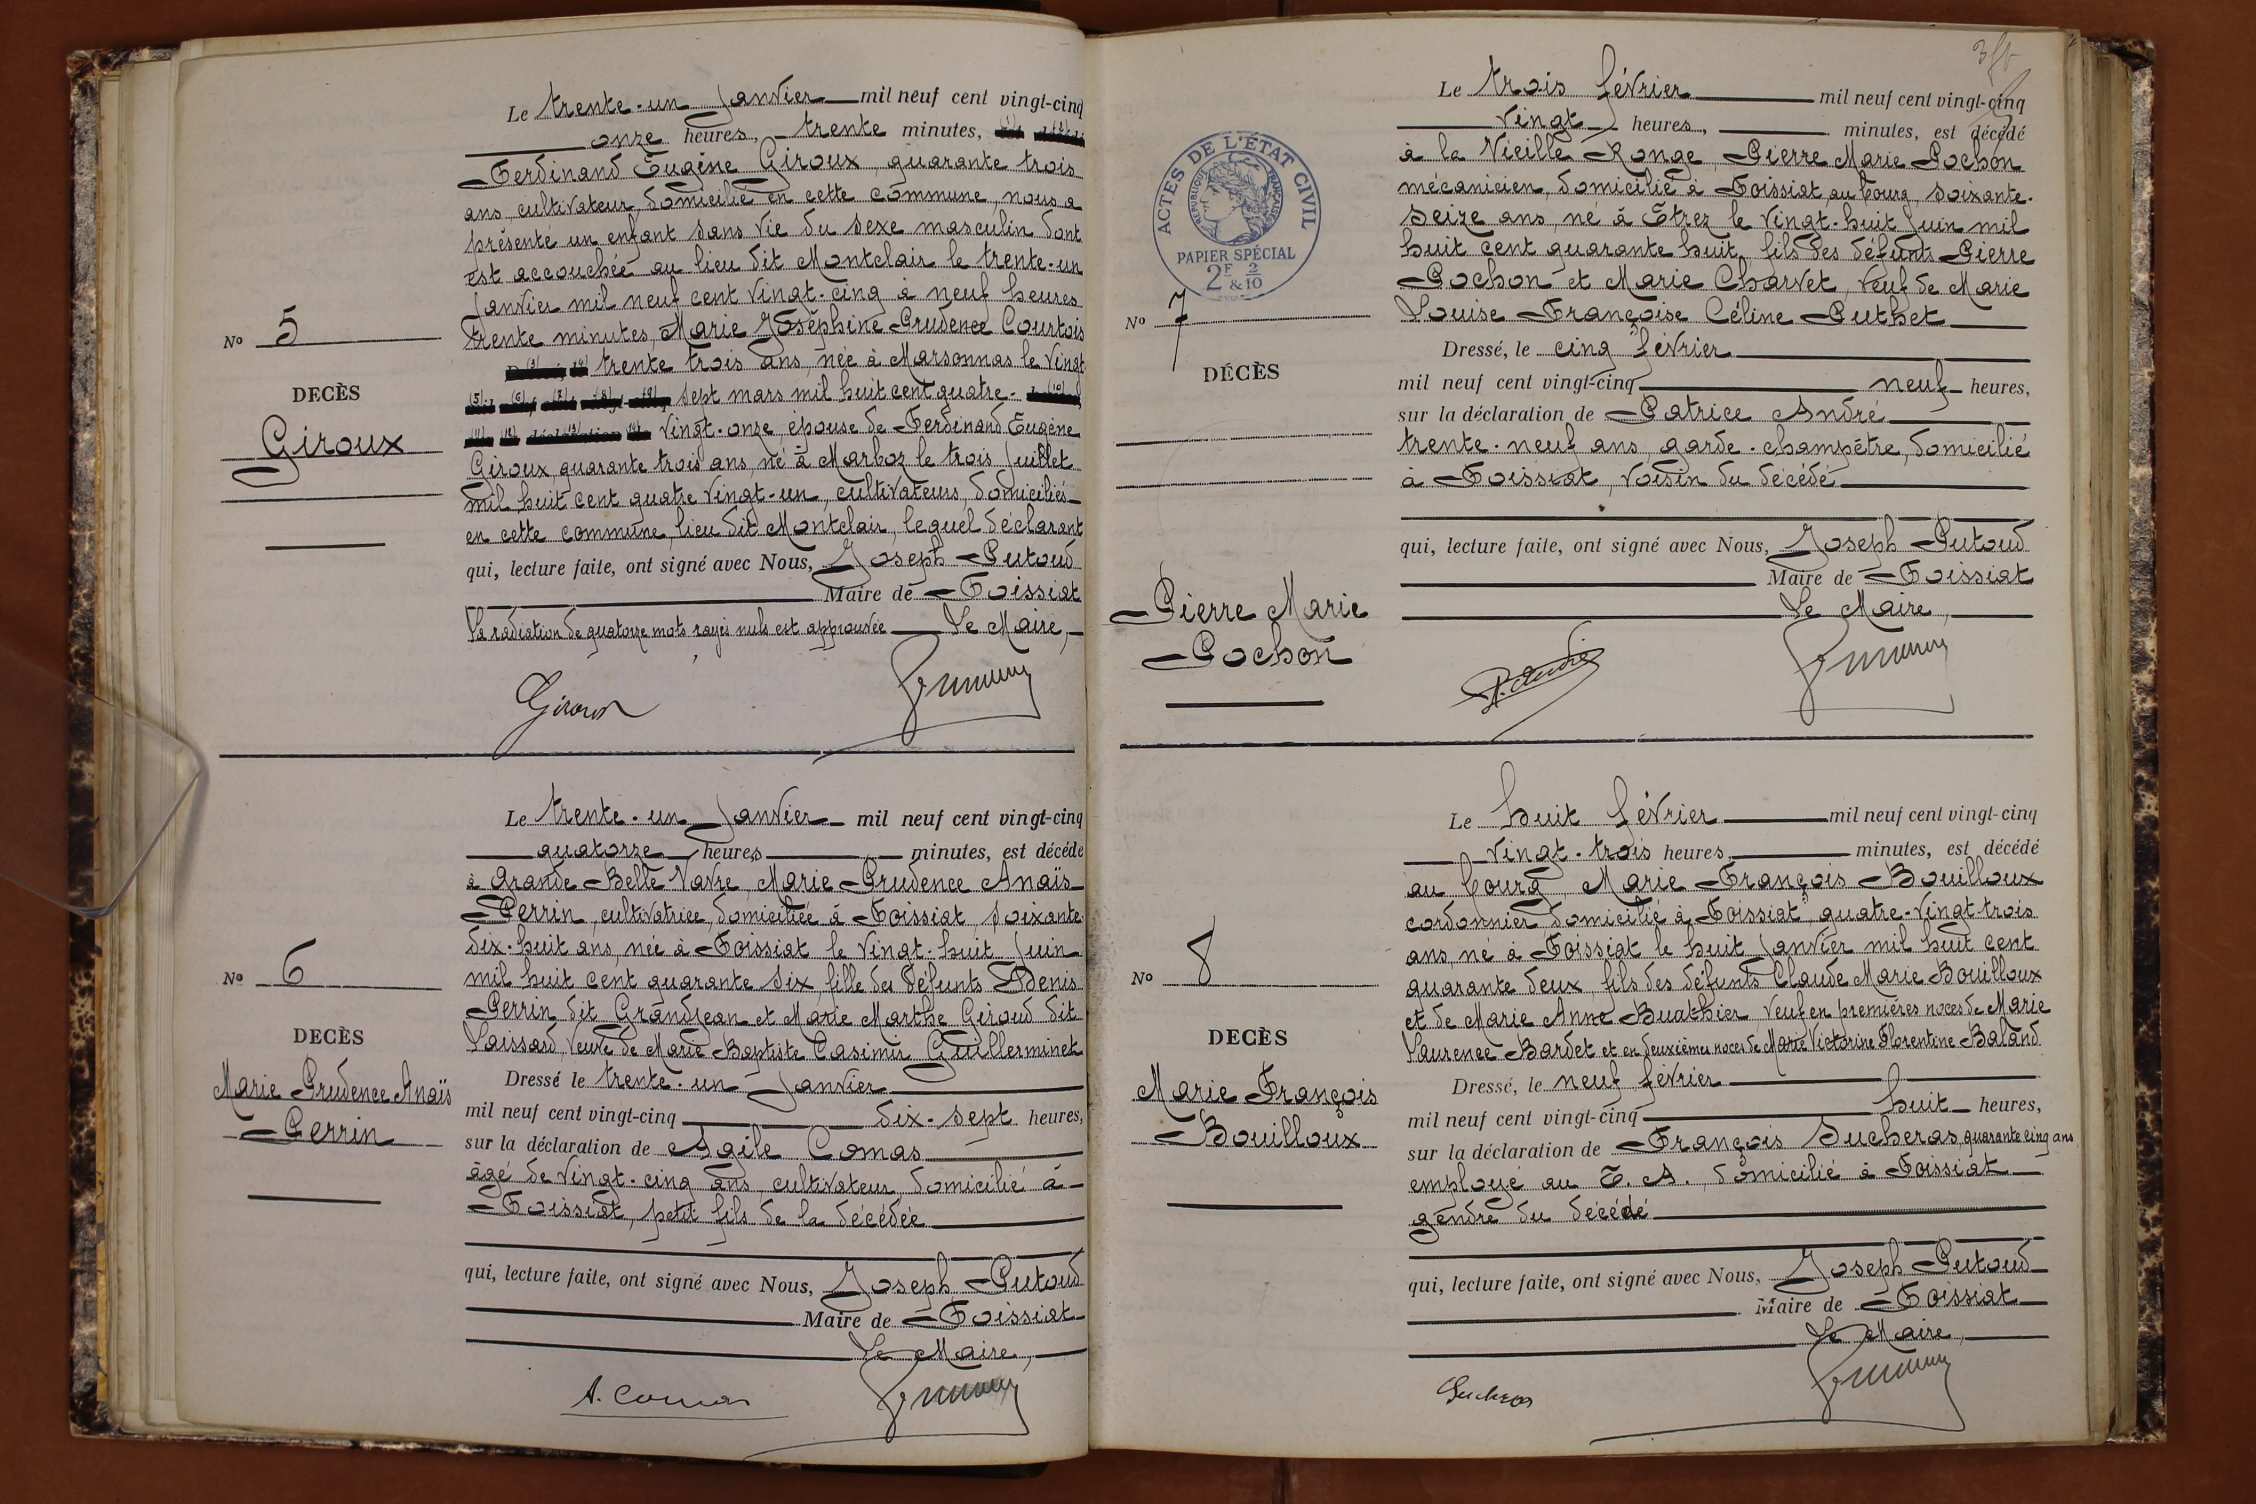 Le trente-un Janvier mil neuf cent vingt-cinq
onze heures, trente minutes,
Ferdinand Eugène Giroux, quarante trois
ans, cultivateur, domicilié en cette commune, nous a
présenté un enfant sans vie du sexe masculin dont
est accouchée au lieu dit Montclair le trente-un
Janvier mil neuf cent vingt-cinq à neuf heures
trente minutes, Marie Joséphine Prudence Courtois
trente trois ans, née à Marsonnas le vingt
sept mars mil huit cent quatre-
vingt-onze, épouse de Ferdinand Eugène
Giroux, quarante trois ans, né à Marboz le trois Juillet
mil huit cent quatre vingt-un, cultivateurs, domiciliés
en cette commune, lieu dit Montclair, lequel déclarant
qui, lecture faite, ont signé avec Nous, Joseph Putoud
Maire de Foissiat
La radiation de quatorze mots rayés nuls est approuvée Le Maire,
Giroux
No 5
DECÈS
Giroux
Le trente-un Janvier mil neuf cent vingt-cinq
quatorze heures minutes, est décédé
à Grande Belle Vavre, Marie Prudence Anaïs
Perrin, cultivatrice, domiciliée à Foissiat, soixante
dix-huit ans, née à Foissiat le vingt-huit Juin
mil huit cent quarante six, fille des défunts Denis
Perrin dit Grandjean et Marie Marthe Giroud dit
Vaissard, veuve de Marie Baptiste Casimir Guillerminet
Dressé le trente-un Janvier
mil neuf cent vingt-cinq dix-sept heures,
sur la déclaration de Agile Comas
âgé de vingt-cinq ans, cultivateur, domicilié à
Foissiat, petit fils de la décédée
qui, lecture faite, ont signé avec Nous, Joseph Putoud
Maire de Foissiat
Le Maire,
A. Comas
No 6
DECÈS
Marie Prudence Anaïs
Perrin
Le trois février mil neuf cent vingt-cinq
vingt heures, minutes, est décédé
à la Vieille Ronge, Pierre Marie Pochon
mécanicien, domicilié à Foissiat, au bourg, soixante-
seize ans, né à Étrez le vingt-huit Juin mil
huit cent quarante huit, fils des défunts Pierre
Pochon et Marie Charvet, veuf de Marie
Louise Françoise Céline Puthet
Dressé, le cinq février
mil neuf cent vingt-cinq neuf heures,
sur la déclaration de Patrice André
trente-neuf ans, garde-champêtre, domicilié
à Foissiat, voisin du décédé
qui, lecture faite, ont signé avec Nous, Joseph Putoud
Maire de Foissiat
Le Maire,
P. André
ACTES DE L'ÉTAT CIVIL
RÉPUBLIQUE FRANÇAISE
PAPIER SPÉCIAL
2F & 2/10
No 7
DÉCÈS
Pierre Marie
Pochon
Le huit février mil neuf cent vingt-cinq
vingt-trois heures, minutes, est décédé
au bourg, Marie François Bouilloux
cordonnier domicilié à Foissiat, quatre-vingt-trois
ans, né à Foissiat le huit Janvier mil huit cent
quarante deux, fils des défunts Claude Marie Bouilloux
et de Marie Anne Buathier veuf en premières noces de Marie
Laurence Bardet et en deuxièmes noces de Marie Victorine Florentine Baland
Dressé, le neuf février
mil neuf cent vingt-cinq huit heures,
sur la déclaration de François Sucheras, quarante cinq ans
employé au T. A., domicilié à Foissiat
gendre du décédé
qui, lecture faite, ont signé avec Nous, Joseph Putoud
Maire de Foissiat
Le Maire,
Sucheras
No 8
DECÈS
Marie François
Bouilloux